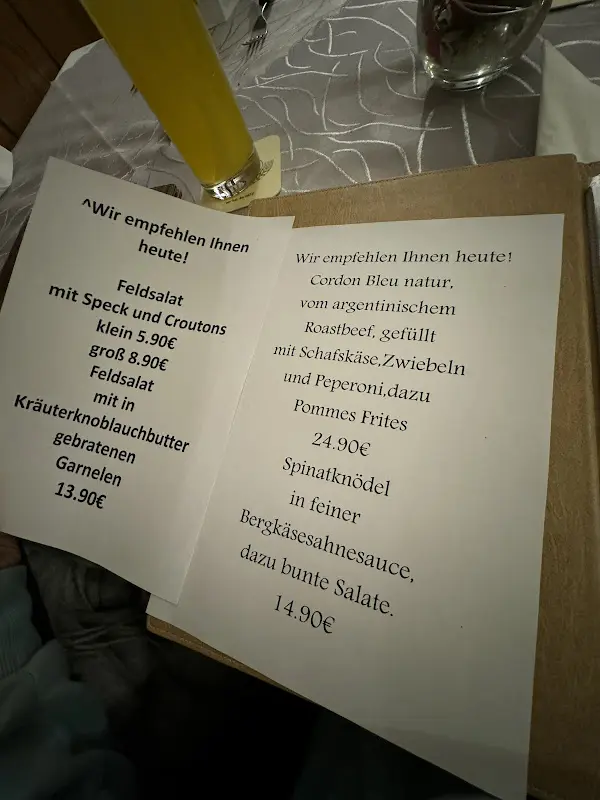 ^Wir empfehlen Ihnen
heute!
Feldsalat
mit Speck und Croutons
klein 5.90€
groß 8.90€
Feldsalat
mit in
Kräuterknoblauchbutter
gebratenen
Garnelen
13.90€
Wir empfehlen Ihnen heute!
Cordon Bleu natur,
vom argentinischem
Roastbeef, gefüllt
mit Schafskäse,Zwiebeln
und Peperoni,dazu
Pommes Frites
24.90€
Spinatknödel
in feiner
Bergkäsesahnesauce,
dazu bunte Salate.
14.90€